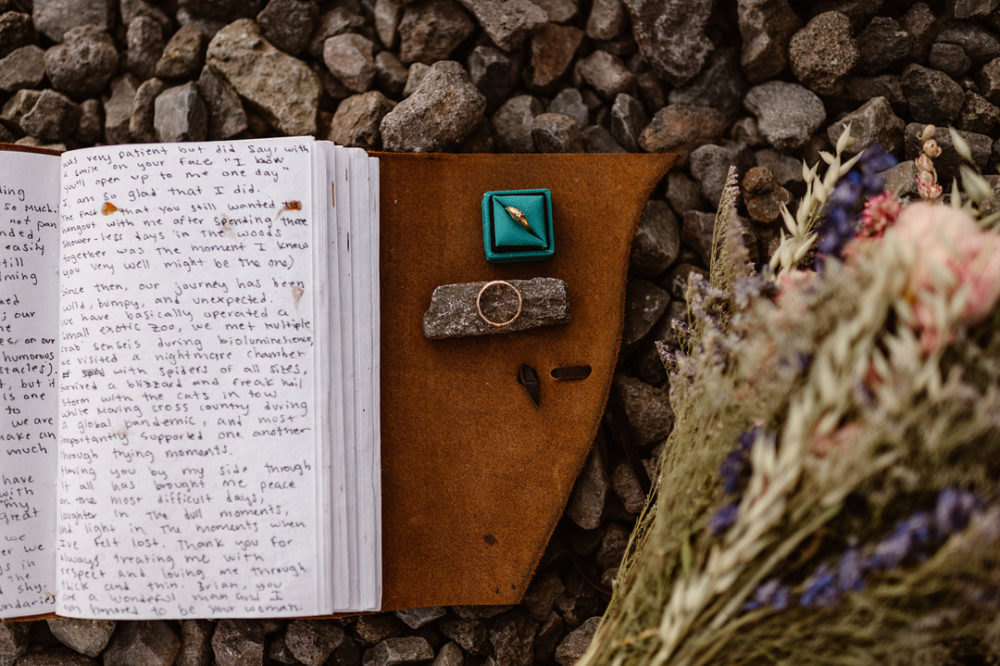 ding
so much.
not pan
nded,
easily
still
lming
ked
; our
ne
es, or our
humorous
stacles).
t, but it
is one
to
we are
make an
much
have
with
my
great
we
er we
in
the
shy.
undaries
was very patient but did say, with
a smile on your face "I know
you'll open up to me one day"
I am so glad that I did.
The fact that you still wanted to
hangout with me after spending three
shower-less days in the woods
together was the moment I knew
you very well might be the one)
Since then, our journey has been
wild, bumpy, and unexpected.
We have basically operated a
small exotic zoo, we met multiple
crab senseis during bioluminescence,
we visited a nightmare chamber
with spiders of all sizes,
survived a blizzard and freak hail
storm with the cats in tow
while moving cross country during
a global pandemic, and most
importantly supported one another
through trying moments.
Having you by my side through
it all has brought me peace
on the most difficult days,
laughter in the dull moments,
and light in the moments when
I've felt lost. Thank you for
always treating me with
respect and loving me through
thick and thin. Brian you
are a wonderful man and I
am honored to be your woman.